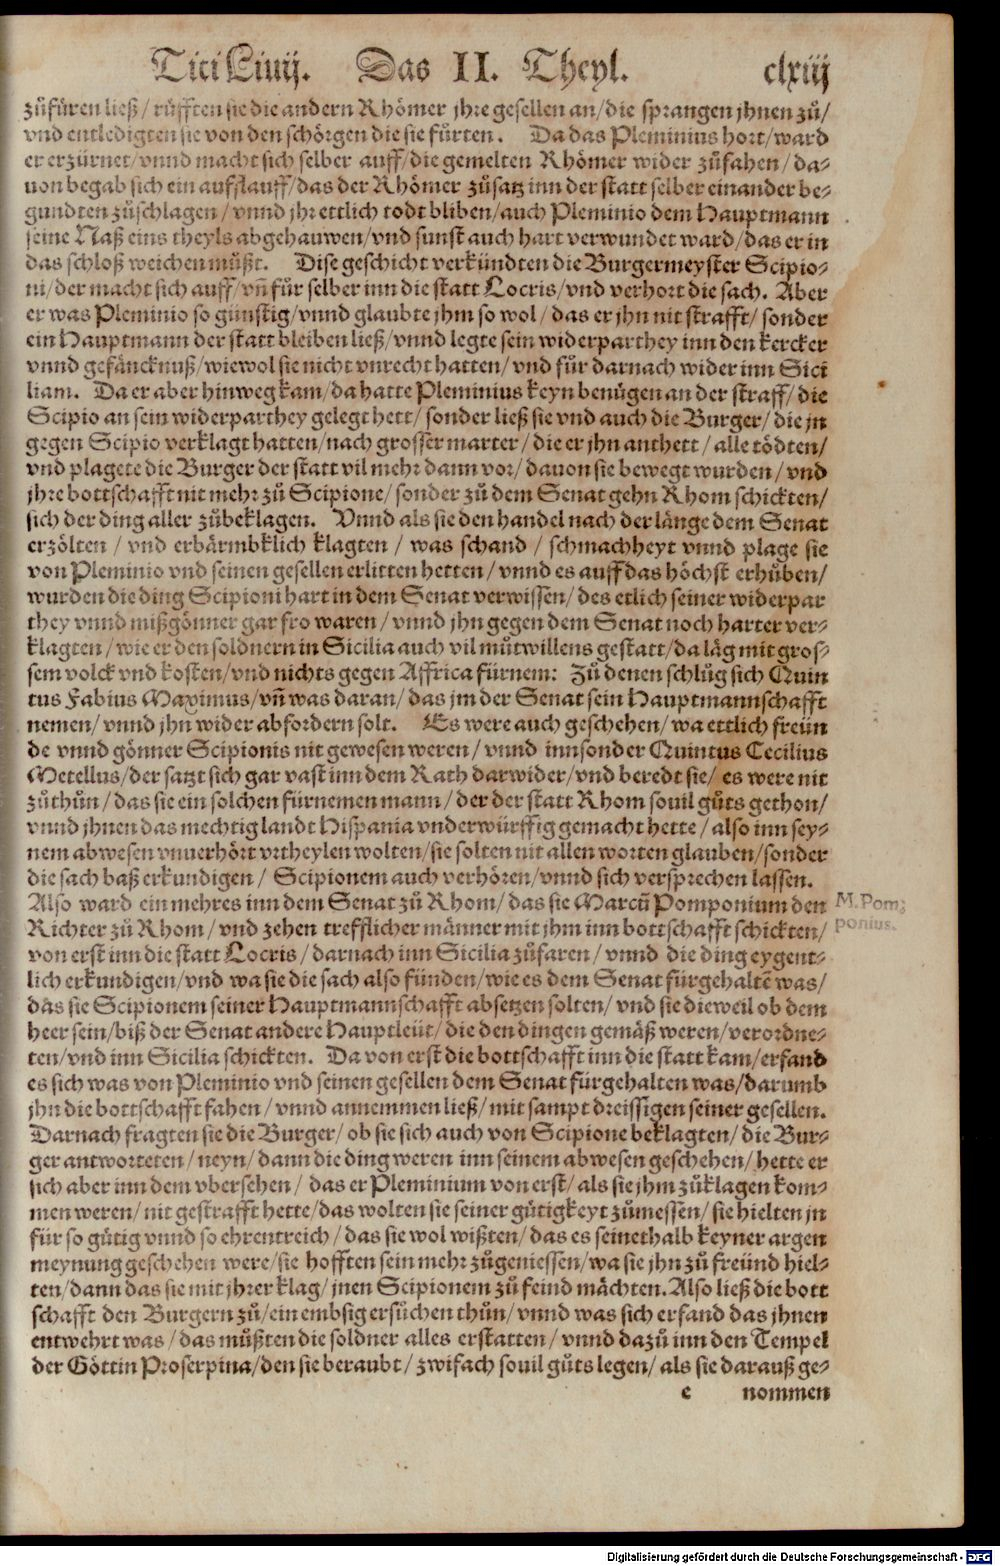 Titi Liuij. Das II. Theyl. clxiij
zůfüren ließ / růfften sie die andern Rhömer jhre gesellen an / die sprangen jhnen zů /
vnd entledigten sie von den schörgen die sie fürten. Da das Pleminius hort / ward
er erzürnet / vnnd macht sich selber auff / die gemelten Rhömer wider zůfahen / da-
uon begab sich ein auffslauff / das der Rhömer zůsatz inn der statt selber einander be-
gundten zůschlagen / vnnd jhr ettlich todt bliben / auch Pleminio dem Hauptmann
seine Naß eins theyls abgehauwen / vnd sunst auch hart verwundet ward / das er in
das schloß weichen můßt. Dise geschicht verkündten die Burgermeyster Scipio-
ni / der macht sich auff / vñ für selber inn die statt Locris / vnd verhort die sach. Aber
er was Pleminio so günstig / vnnd glaubte jhm so wol / das er jhn nit strafft / sonder
ein Hauptmann der statt bleiben ließ / vnnd legte sein widerparthey inn den kercker
vnnd gefäncknuß / wiewol sie nicht vnrecht hatten / vnd für darnach wider inn Sici
liam. Da er aber hinweg kam / da hatte Pleminius keyn benügen an der straff / die
Scipio an sein widerparthey gelegt hett / sonder ließ sie vnd auch die Burger / die jn
gegen Scipio verklagt hatten / nach grosser marter / die er jhn anthett / alle tödten /
vnd plagete die Burger der statt vil mehr dann vor / dauon sie bewegt wurden / vnd
jhre bottschafft nit mehr zů Scipione / sonder zů dem Senat gehn Rhom schickten /
sich der ding aller zůbeklagen. Vnnd als sie den handel nach der länge dem Senat
erzölten / vnd erbärmbklich klagten / was schand / schmachheyt vnnd plage sie
von Pleminio vnd seinen gesellen erlitten hetten / vnnd es auff das höchst erhůben /
wurden die ding Scipioni hart in dem Senat verwissen / des etlich seiner widerpar
they vnnd mißgönner gar fro waren / vnnd jhn gegen dem Senat noch harter ver-
klagten / wie er den soldnern in Sicilia auch vil můtwillens gestatt / da läg mit gros-
sem volck vnd kosten / vnd nichts gegen Affrica fürnem: Zů denen schlůg sich Quin
tus Fabius Maximus / vñ was daran / das jm der Senat sein Hauptmannschafft
nemen / vnnd jhn wider abfordern solt. Es were auch geschehen / wa ettlich freün
de vnnd gönner Scipionis nit gewesen weren / vnnd innsonder Quintus Cecilius
Metellus / der satzt sich gar vast inn dem Rath darwider / vnd beredt sie / es were nit
zůthůn / das sie ein solchen fürnemen mann / der der statt Rhom souil gůts gethon /
vnnd jhnen das mechtig landt Hispania vnderwürffig gemacht hette / also inn sey-
nem abwesen vnuerhört vrtheylen wolten / sie solten nit allen worten glauben / sonder
die sach baß erkundigen / Scipionem auch verhören / vnnd sich versprechen lassen.
Also ward ein mehres inn dem Senat zů Rhom / das sie Marcũ Pomponium den
Richter zů Rhom / vnd zehen trefflicher männer mit jhm inn bottschafft schickten /
von erst inn die statt Locris / darnach inn Sicilia zůfaren / vnnd die ding eygent-
lich erkundigen / vnd wa sie die sach also fünden / wie es dem Senat fürgehaltẽ was /
das sie Scipionem seiner Hauptmannschafft absetzen solten / vnd sie dieweil ob dem
heer sein / biß der Senat andere Hauptleüt / die den dingen gemäß weren / verordne-
ten / vnd inn Sicilia schickten. Da von erst die bottschafft inn die statt kam / erfand
es sich was von Pleminio vnd seinen gesellen dem Senat fürgehalten was / darumb
jhn die bottschafft fahen / vnnd annemmen ließ / mit sampt dreissigen seiner gesellen.
Darnach fragten sie die Burger / ob sie sich auch von Scipione beklagten / die Bur-
ger antworteten / neyn / dann die ding weren inn seinem abwesen geschehen / hette er
sich aber inn dem vbersehen / das er Pleminium von erst / als sie jhm zůklagen kom-
men weren / nit gestrafft hette / das wolten sie seiner gütigkeyt zůmessen / sie hielten jn
für so gütig vnnd so ehrentreich / das sie wol wißten / das es seinethalb keyner argen
meynung geschehen were / sie hofften sein mehr zůgeniessen / wa sie jhn zů freünd hiel-
ten / dann das sie mit jhrer klag / jnen Scipionem zů feind mächten. Also ließ die bott
schafft den Burgern zů / ein embsig ersůchen thůn / vnnd was sich erfand das jhnen
entwehrt was / das můßten die soldner alles erstatten / vnnd dazů inn den Tempel
der Göttin Proserpina / den sie beraubt / zwifach souil gůts legen / als sie darauß ge-
e nommen
M. Pom-
ponius.
Digitalisierung gefördert durch die Deutsche Forschungsgemeinschaft - DFG